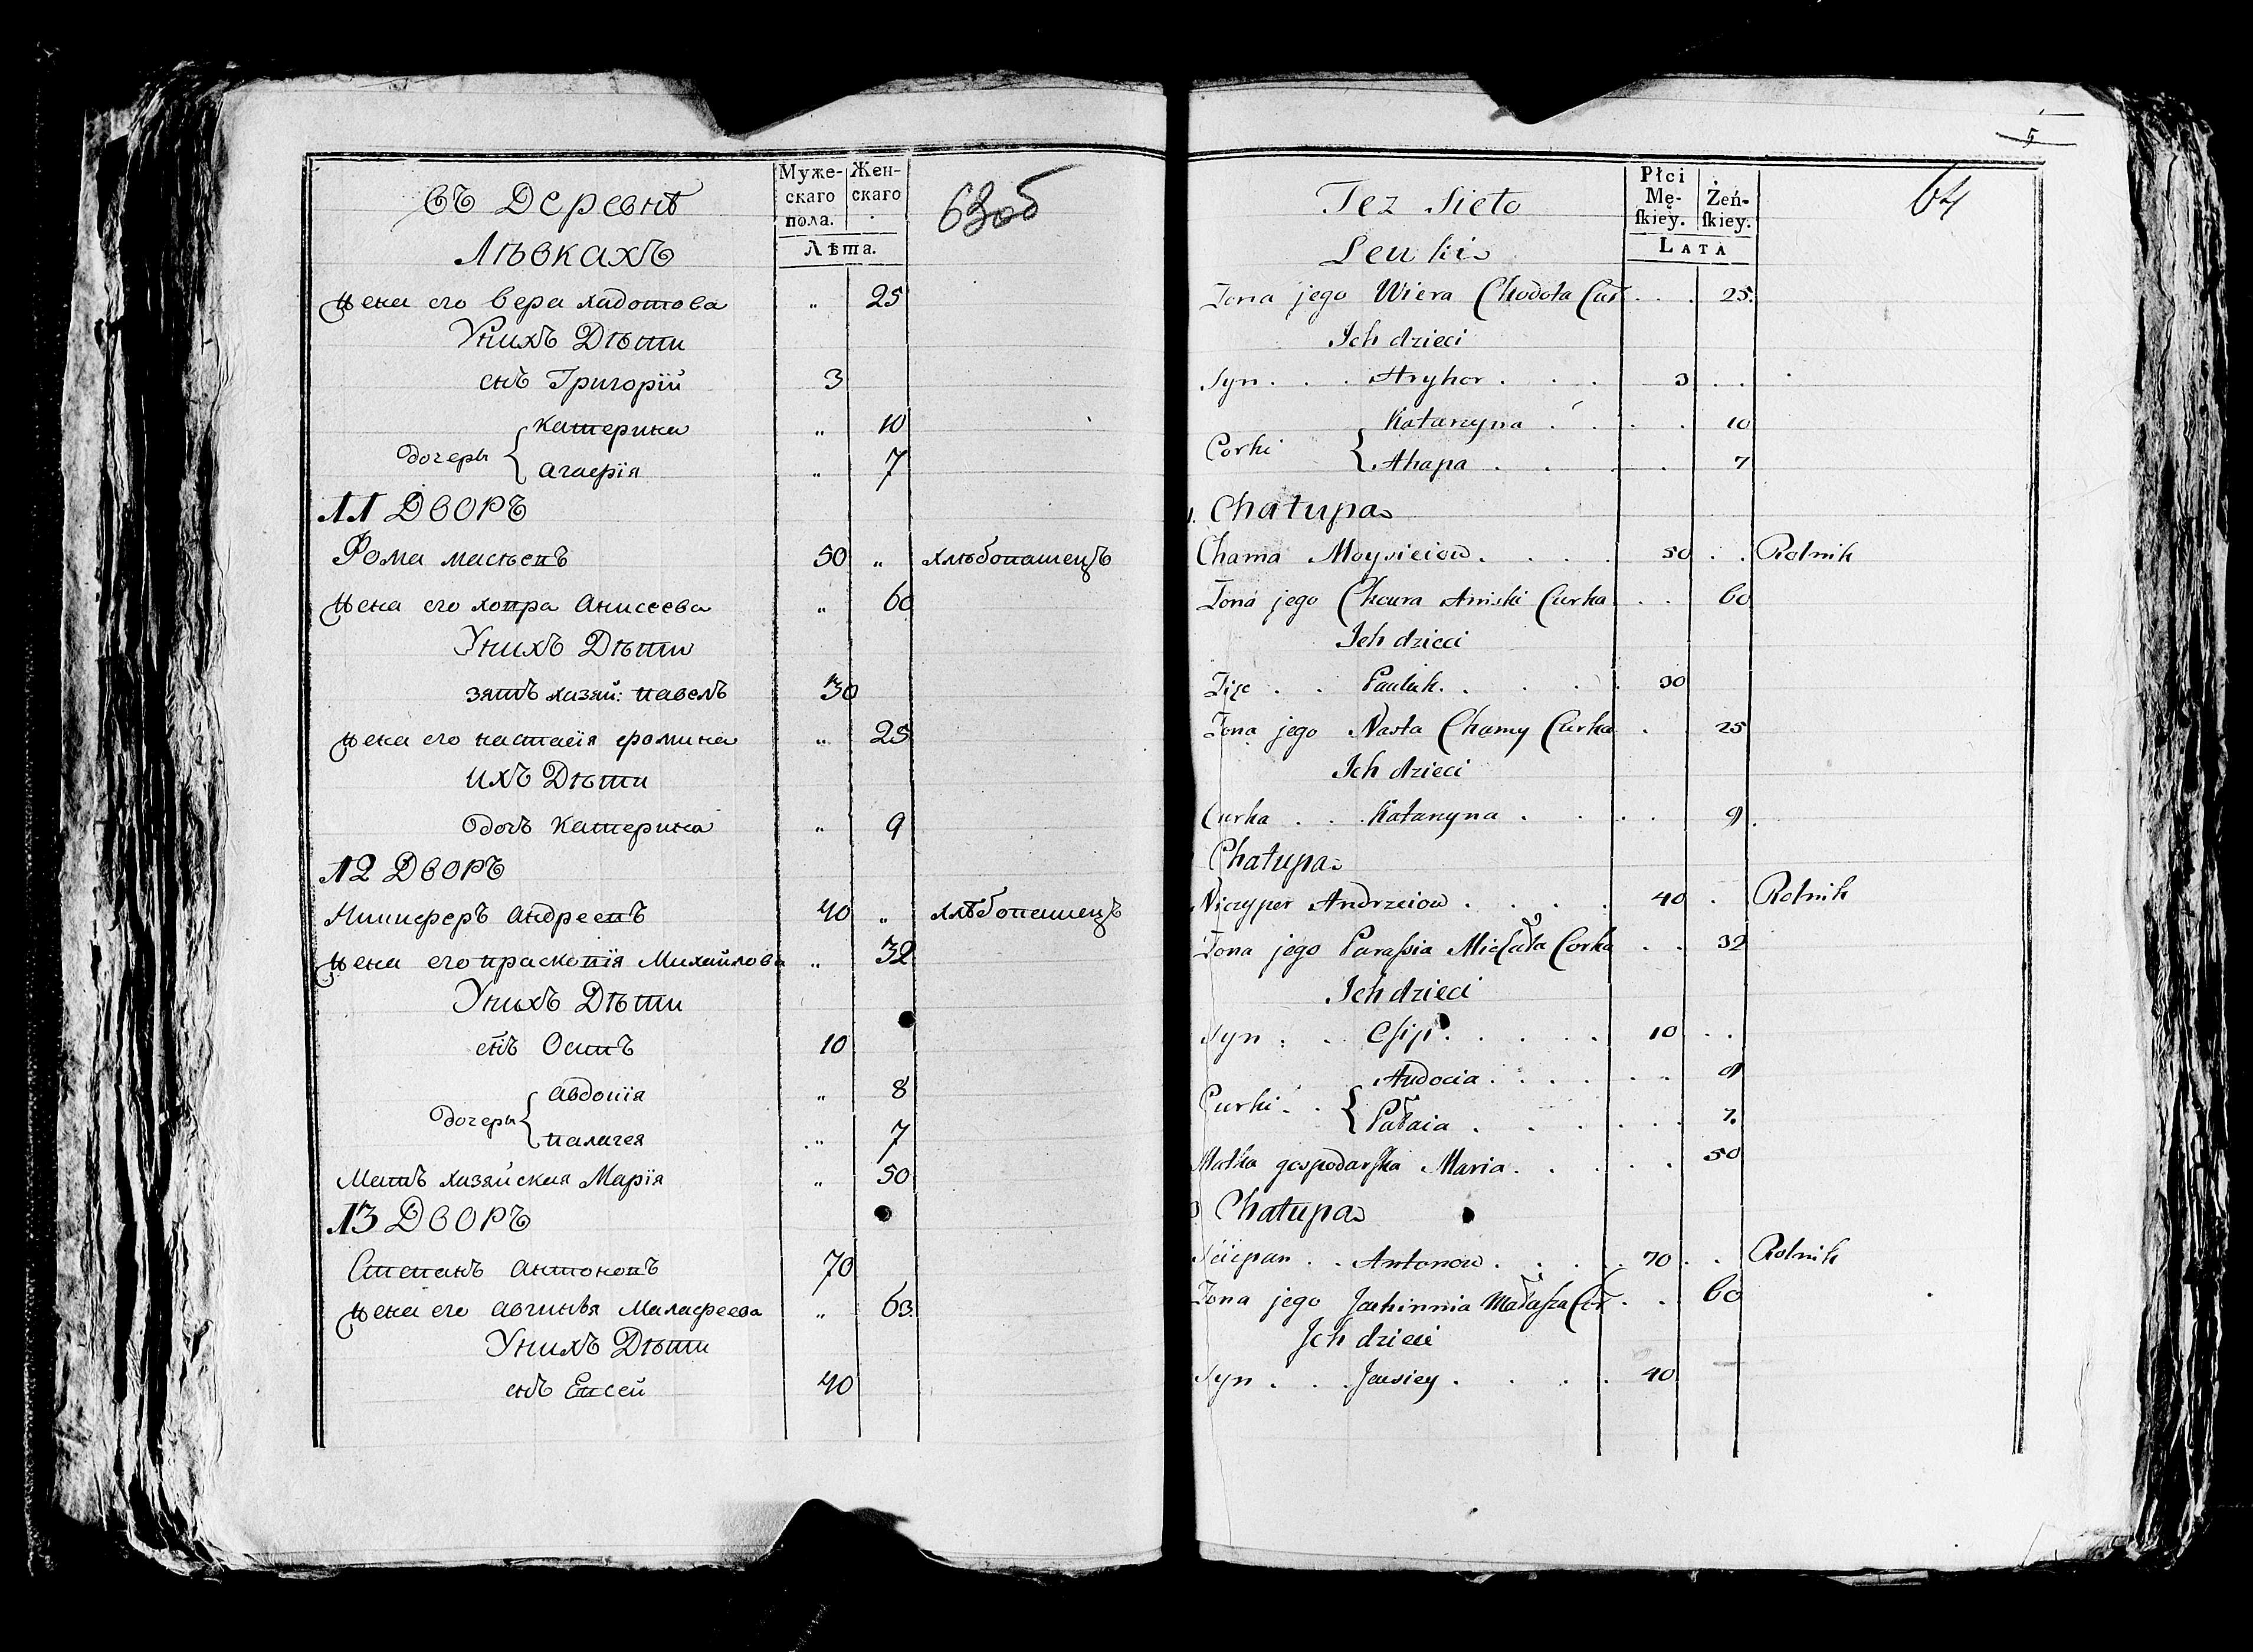 въ Деревнѣ
Муже-
скаго
пола.
Жен-
скаго
63об
Лѣвкахъ
Лѣта.
жена его вера хадотова „ 25
Унихъ Дѣти
снъ Григорїй 3
дочеры { Катерина „ 10
агаефїя „ 7
11 Дворъ
Фома 50 „ хлѣбопашецъ
жена его Анисеева „ 60
Унихъ Дѣти
зятъ хазяй: павелъ 30
жена его настасїя фомина „ 25
ихъ Дѣти
дочъ Катерина „ 9
12 Дворъ
Ничиферъ андреевъ 40 „ хлѣбопашецъ
жена его прасковїя Михайлова „ 32
Унихъ Дѣти
снъ Осипъ 10
дочеры { авдотїя „ 8
палагея „ 7
Матъ хазяйская Марїя „ 50
13 Дворъ
Степанъ антоновъ 70
жена его Малафеева „ 63
Унихъ Дѣти
снъ Евсей 40
5
Tez Sieło
Płci
Mę-
ſkiey.
Żeń-
ſkiey.
64
Leuki
LATA
Zona jego Wiera Chodota Cur . . . 25.
Ich dzieci
Syn . . . Hryhor . . . 3 . .
Corki { Katarzyna . . . . 10
Ahapa . . . . 7
Chałupa
Chama Moysieiow . . . . 50 . . Rolnik
Zona jego Chowra Aniski Curka . . 60
Ich dzieci
Zięc . . Pauluk . . . . . 30
Zona jego Nasta Chamy Curka . 25
Ich dzieci
Curka . . Katarzyna . . . . 9.
Chałupa
Niczyper Andrzeiow . . . . 40 . Rolnik
Zona jego Paraſsia Michała Corka . . 32
Ich dzieci
Syn . . . . . . . 10 . .
Curki . . { Audocia . . . . . .
. . . . . 7.
Matka gospodarſka Maria . . . . . 50
Chałupa
Sciepan . . Antonow . . . . 70 . . Rolnik
Zona jego . . 60
Ich dzieci
Syn . . . Jausiey . . . . 40